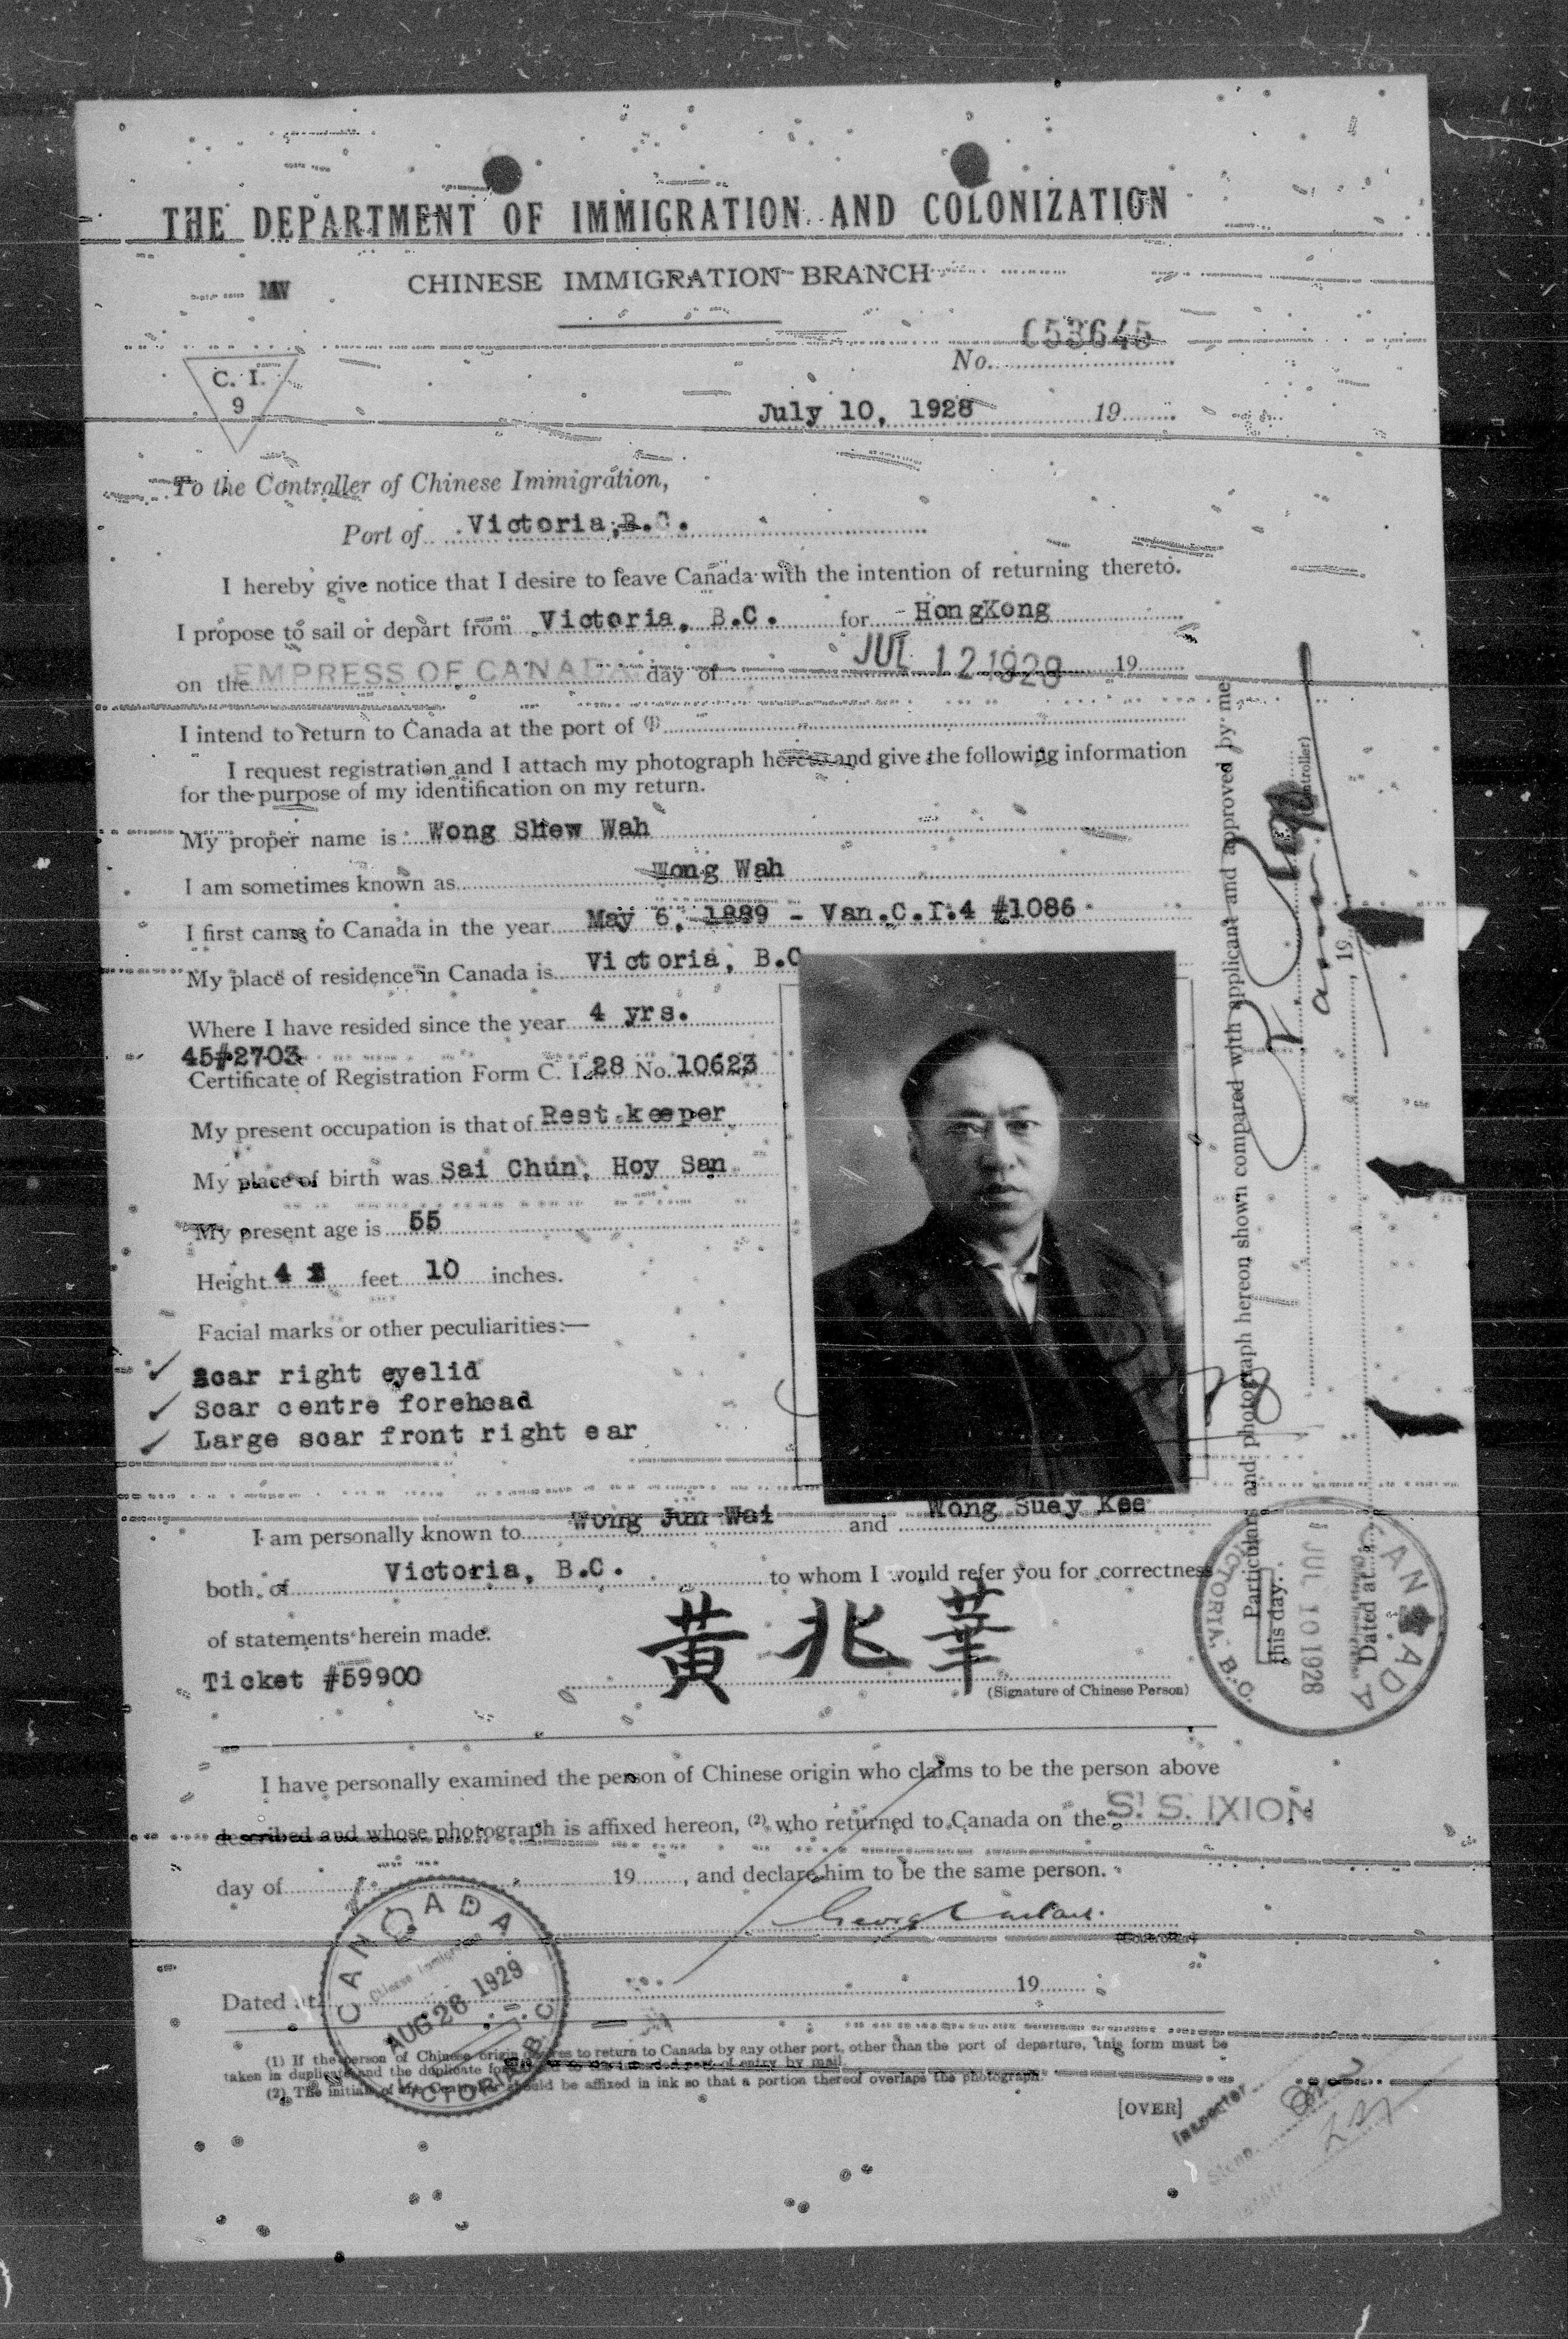 THE DEPARTMENT OF IMMIGRATION AND COLONIZATION
CHINESE IMMIGRATION BRANCH
No. C53645
C. I.
9
July 10, 1928 19
To the Controller of Chinese Immigration,
Port of Victoria, B.C.
I hereby give notice that I desire to leave Canada with the intention of returning thereto.
I propose to sail or depart from Victoria, B.C. for HongKong
on the EMPRESS OF CANADA day of JUL 12 1928 19
I intend to return to Canada at the port of (1)
I request registration and I attach my photograph hereto and give the following information
for the purpose of my identification on my return.
My proper name is Wong Shew Wah
I am sometimes known as Wong Wah
I first came to Canada in the year May 6, 1889 - Van.C.I.4 #1086
My place of residence in Canada is Victoria, B.C
Where I have resided since the year 4 yrs.
45#2703
Certificate of Registration Form C. I. 28 No. 10623
My present occupation is that of Rest.keeper
My place of birth was Sai Chun, Hoy San
My present age is 55
Height 4 feet 10 inches.
Facial marks or other peculiarities:—
Scar right eyelid
Scar centre forehead
Large scar front right ear
I am personally known to Wong Jun Wai and Wong Suey Kee
both of Victoria, B.C. to whom I would refer you for correctness
of statements herein made.
黃兆華
Ticket #59900
(Signature of Chinese Person)
Particulars and photograph hereon shown compared with applicant and approved by me
this day
Dated at 19
CANADA
JUL 10 1928
VICTORIA, B.C.
I have personally examined the person of Chinese origin who claims to be the person above
described and whose photograph is affixed hereon, (2) who returned to Canada on the S.S. IXION
day of 19 , and declare him to be the same person.
(Controller)
Dated at 19
CANADA
Chinese Immigration
AUG 26 1929
VICTORIA B.C.
(1) If the person of Chinese origin desires to return to Canada by any other port, other than the port of departure, this form must be
taken in duplicate and the duplicate forwarded to the intended port of entry by mail.
(2) The initials of the Controller should be affixed in ink so that a portion thereof overlaps the photograph.
[OVER]
Inspector
Steno.